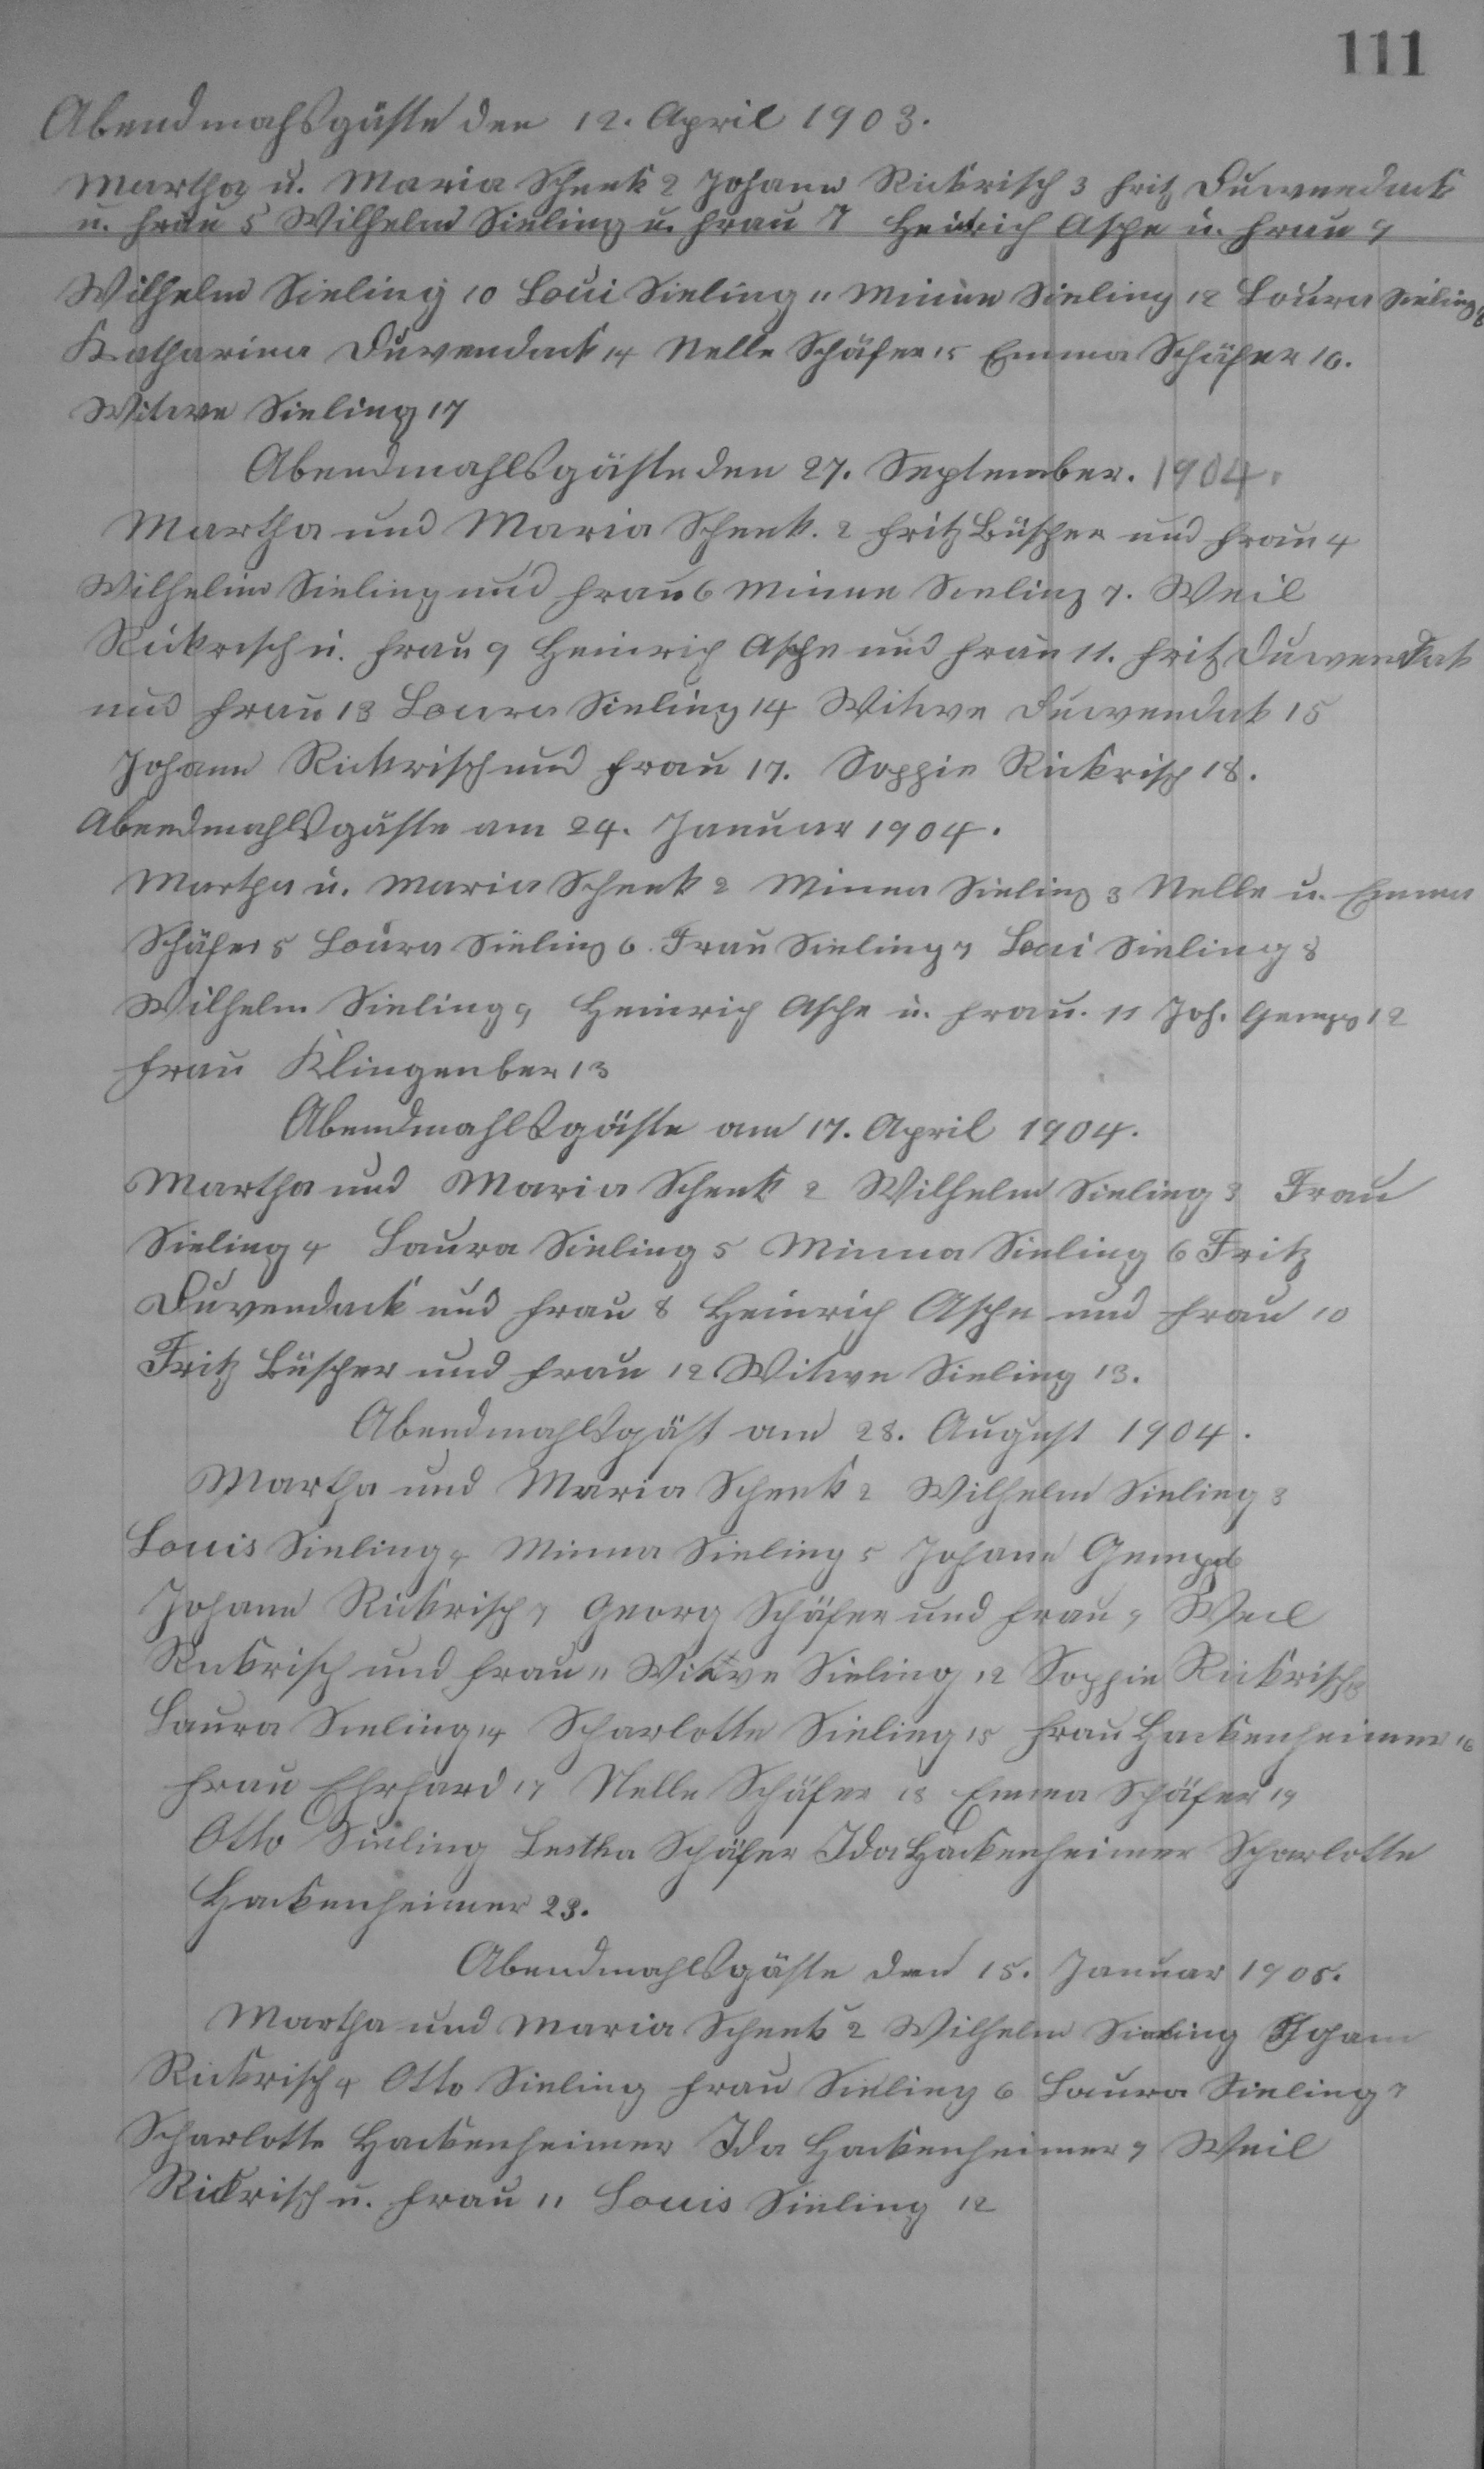 111
Abendmahlsgäste den 12. April 1903.
Martha u. Maria Schenk 2 Johann Rickrisch 3 Fritz Duwendack
u. Frau 5 Wilhelm Sieling u. Frau 7 Heinrich Asche u. Frau 9
Wilhelm Sieling 10 Loui Sieling 11 Minna Sieling 12 Loura Sieling 13
Katharina Duvendack 14 Nelle Schäfer 15 Emma Schäfer 16.
Witwe Sieling 17
Abendmahlsgäste den 27. September. 1904.
Martha und Maria Schenk. 2 Fritz Büscher und Frau 4
Wilhelm Sieling und Frau 6 Minna Sieling 7. Weil
Rickrisch u. Frau 9 Heinrich Asche und Frau 11. Fritz Duwendak
und Frau 13 Loura Sieling 14 Witwe Duwendak 15
Johann Rickrisch und Frau 17. Sophie Rickrisch 18.
Abendmahlsgäste am 24. Januar 1904.
Martha u. Maria Schenk 2 Minna Sieling 3 Nelle u. Emma
Schäfer 5 Loura Sieling 6. Frau Sieling 7 Loui Sieling 8
Wilhelm Sieling 9 Heinrich Asche u. Frau. 11 Joh. Gempp 12
Frau Klingenber 13
Abendmahlsgäste am 17. April 1904.
Martha und Maria Schenk 2 Wilhelm Sieling 3 Frau
Sieling 4 Laura Sieling 5 Minna Sieling 6 Fritz
Duvendack und Frau 8 Heinrich Asche und Frau 10
Fritz Büscher und Frau 12 Witwe Sieling 13.
Abendmahlsgäst am 28. August 1904.
Martha und Maria Schenk 2 Wilhelm Sieling 3
Louis Sieling 4 Minna Sieling 5 Johann Gempp 6
Johann Rickrisch 7 Georg Schäfer und Frau 9 Weil
Rickrisch und Frau 11 Witwe Sieling 12 Sophie Rickrisch 13
Laura Sieling 14 Scharlotte Sieling 15 Frau Hackenheimer 16
Frau Ehrhard 17 Nelle Schäfer 18 Emma Schäfer 19
Otto Sieling Schäfer Ida Hackenheimer Scharlotte
Hackenheimer 23.
Abendmahlsgäste den 15. Januar 1905.
Martha und Maria Schenk 2 Wilhelm Sieling Joham
Rickrisch 4 Otto Sieling Frau Sieling 6 Laura Sieling 7
Scharlotte Hackenheimer Ida Hackenheimer 9 Weil
Rickrisch u. Frau 11 Louis Sieling 12